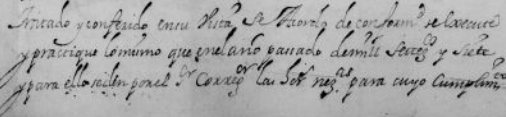 tratado y conferido en su Vista Se Acordo de conform.d se execute
y practique lo mismo que en el año passado de mill Setez.s y Siete
y para ello se den por el S.r Correg.or las hor.s nez.as para cuyo Cumplim.to